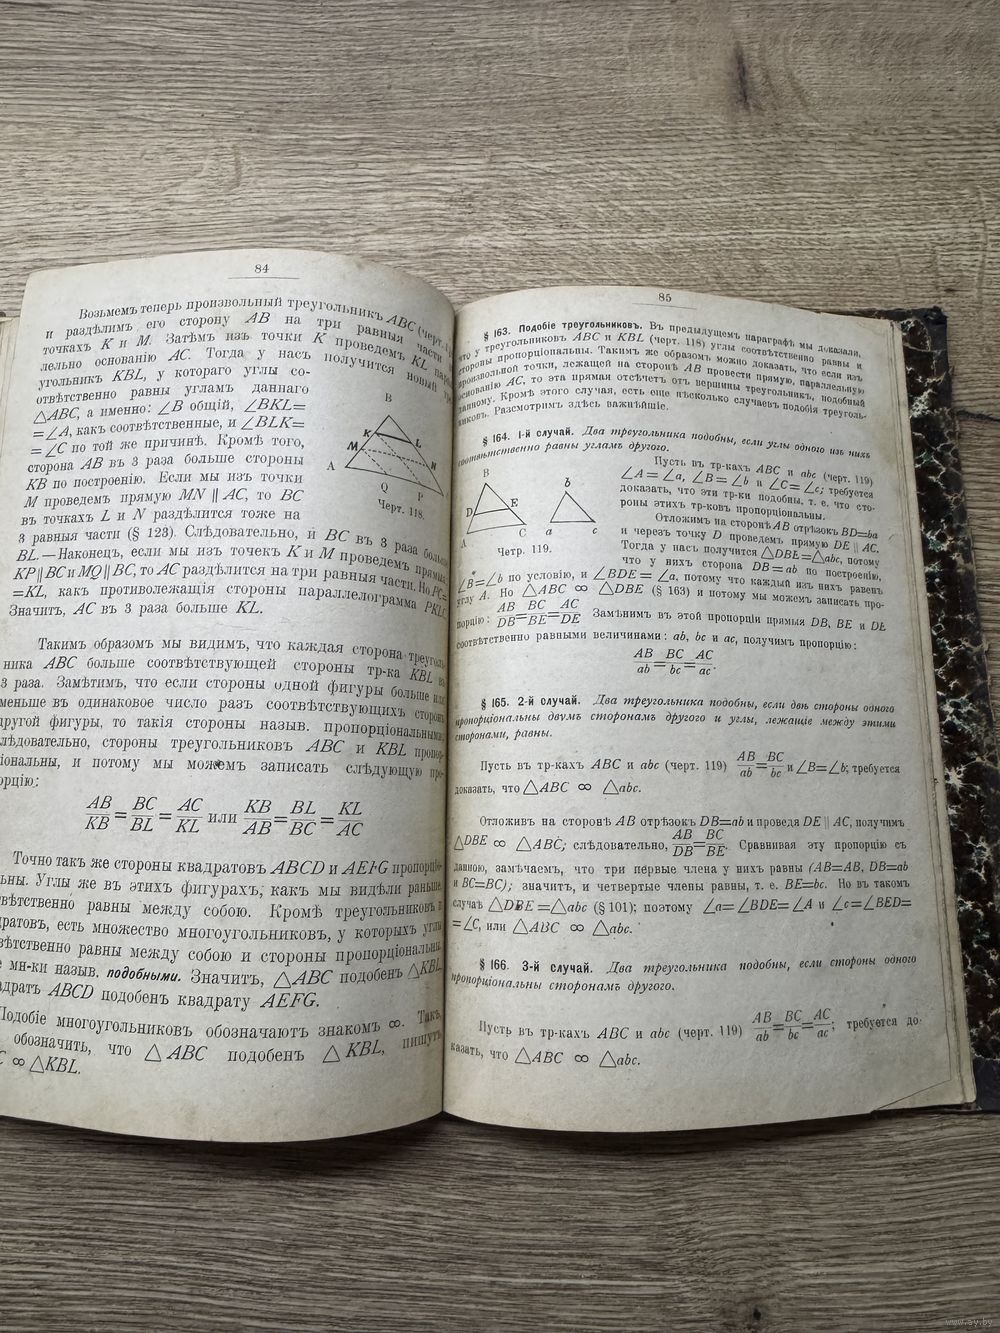 84
Возьмемъ теперь произвольный треугольникъ ABC (черт.
и раздѣлимъ его сторону AB на три равныя части
точкахъ K и M. Затѣмъ изъ точки K проведемъ KL
лельно основанію AC. Тогда у насъ получится новый
угольникъ KBL, у котораго углы со-
отвѣтственно равны угламъ даннаго
△ABC, а именно: ∠B общій, ∠BKL=
=∠A, какъ соотвѣтственные, и ∠BLK=
=∠C по той же причинѣ. Кромѣ того,
сторона AB въ 3 раза больше стороны
KB по построенію. Если мы изъ точки
M проведемъ прямую MN ∥ AC, то BC
въ точкахъ L и N раздѣлится тоже на
B
K
L
M
N
A
Q
P
Черт. 118.
3 равныя части (§ 123). Слѣдовательно, и BC въ 3 раза больше
BL.—Наконецъ, если мы изъ точекъ K и M проведемъ прямыя
KP∥BC и MQ∥BC, то AC раздѣлится на три равныя части. Но PC=
=KL, какъ противолежащія стороны параллелограмма PKLC
Значитъ, AC въ 3 раза больше KL.
Такимъ образомъ мы видимъ, что каждая сторона треуголь-
ника ABC больше соотвѣтствующей стороны тр-ка KBL въ
3 раза. Замѣтимъ, что если стороны одной фигуры больше или
меньше въ одинаковое число разъ соотвѣтствующихъ сторонъ
другой фигуры, то такія стороны назыв. пропорціональными.
лѣдовательно, стороны треугольниковъ ABC и KBL пропор-
ціональны, и потому мы можемъ записать слѣдующую про-
орцію:
AB/KB = BC/BL = AC/KL или KB/AB = BL/BC = KL/AC
Точно такъ же стороны квадратовъ ABCD и AEFG пропорціо-
льны. Углы же въ этихъ фигурахъ, какъ мы видѣли раньше,
вѣтственно равны между собою. Кромѣ треугольниковъ и
дратовъ, есть множество многоугольниковъ, у которыхъ углы
вѣтственно равны между собою и стороны пропорціональны.
е мн-ки назыв. подобными. Значитъ, △ABC подобенъ △KBL,
адратъ ABCD подобенъ квадрату AEFG.
Подобіе многоугольниковъ обозначаютъ знакомъ ∞. Такъ,
обозначить, что △ ABC подобенъ △ KBL, пишутъ
C ∞ △KBL.
85
§ 163. Подобіе треугольниковъ. Въ предыдущемъ параграфѣ мы доказали,
что у треугольниковъ ABC и KBL (черт. 118) углы соотвѣтственно равны и
стороны пропорціональны. Такимъ же образомъ можно доказать, что если изъ
произвольной точки, лежащей на сторонѣ AB провести прямую, параллельную
основанію AC, то эта прямая отсѣчетъ отъ вершины треугольникъ, подобный
данному. Кромѣ этого случая, есть еще нѣсколько случаевъ подобія треуголь-
никовъ. Разсмотримъ здѣсь важнѣйшіе.
§ 164. 1-й случай. Два треугольника подобны, если углы одного изъ нихъ
соотвѣтственно равны угламъ другого.
B
D
E
A
C
b
a
c
Четр. 119.
Пусть въ тр-кахъ ABC и abc (черт. 119)
∠A=∠a, ∠B=∠b и ∠C=∠c; требуется
доказать, что эти тр-ки подобны, т. е. что сто-
роны этихъ тр-ковъ пропорціональны.
Отложимъ на сторонѣ AB отрѣзокъ BD=ba
и черезъ точку D проведемъ прямую DE ∥ AC.
Тогда у насъ получится △DBE=△abc, потому
что у нихъ сторона DB=ab по построенію,
∠B=∠b по условію, и ∠BDE=∠a, потому что каждый изъ нихъ равенъ
углу A. Но △ABC ∞ △DBE (§ 163) и потому мы можемъ записать про-
порцію: AB/DB=BC/BE=AC/DE Замѣнимъ въ этой пропорціи прямыя DB, BE и DE
соотвѣтственно равными величинами: ab, bc и ac, получимъ пропорцію:
AB/ab=BC/bc=AC/ac.
§ 165. 2-й случай. Два треугольника подобны, если двѣ стороны одного
пропорціональны двумъ сторонамъ другого и углы, лежащіе между этими
сторонами, равны.
Пусть въ тр-кахъ ABC и abc (черт. 119) AB/ab=BC/bc и ∠B=∠b; требуется
доказать, что △ABC ∞ △abc.
Отложивъ на сторонѣ AB отрѣзокъ DB=ab и проведя DE ∥ AC, получимъ
△DBE ∞ △ABC; слѣдовательно, AB/DB=BC/BE. Сравнивая эту пропорцію съ
данною, замѣчаемъ, что три первые члена у нихъ равны (AB=AB, DB=ab
и BC=BC); значитъ, и четвертые члены равны, т. е. BE=bc. Но въ такомъ
случаѣ △DBE=△abc (§ 101); поэтому ∠a=∠BDE=∠A и ∠c=∠BED=
=∠C, или △ABC ∞ △abc.
§ 166. 3-й случай. Два треугольника подобны, если стороны одного
пропорціональны сторонамъ другого.
Пусть въ тр-кахъ ABC и abc (черт. 119) AB/ab=BC/bc=AC/ac; требуется до-
казать, что △ABC ∞ △abc.
www.ay.by